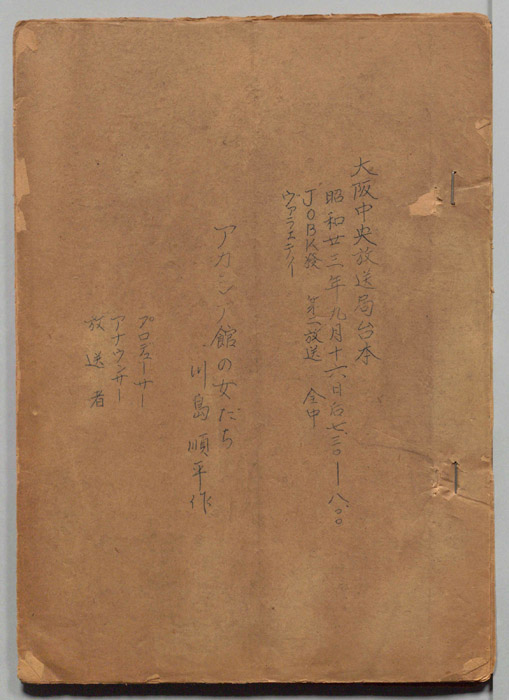 大阪中央放送局台本
昭和廿三年九月十六日后七.三〇—八.〇〇
JOBK発 第二放送 全中
ヴァラエティー
アカシヤ館の女たち
川島順平作
プロデューサー
アナウンサー
放送者